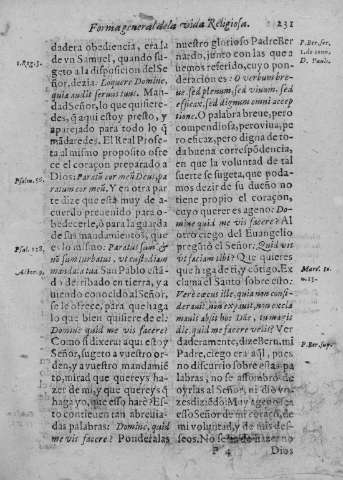 Forma general de la vida Religiosa. 231
dadera obediencia, era la
de vn Samuel, quando su-
geto a la disposicion del Se
ñor, dezia. Loquere Domine,
quia audit seruus tuus. Man-
dad Señor, lo que quisiere-
des, q̃ aqui estoy presto, y
aparejado para todo lo q̃
mãdaredes. El Real Profe-
ta al mismo proposito ofre
ce el coraçon preparado a
Dios: Paratũ cor meũ Deus, pa
ratum cor meũ. Y en otra par
te dize que està muy de a-
cuerdo preuenido para o-
bedecerle, ò para la guarda
de sus mandamientos, que
es lo mismo: Paratus sum, &
nõ sum turbatus, vt custodiam
mandata tua. San Pablo està
do derribado en tierra, y a
uiendo conocido al Señor,
se le ofrece, para que haga
lo que bien quisiere de el:
Domine quid me vis facere?
Como si dixera: aqui estoy
Señor, sugeto a vuestro or-
den, y a vuestro mandamiẽ
to, mirad que quereys ha-
zer de mi, y que quereys q̃
haga yo, que esso harè? Es-
to contienen tan abreuia-
das palabras: Domine, quid
me vis facere? Ponderalas
1. Reg. 3.
Psalm. 56.
Psal. 118.
Actor. 9.
nuestro glorioso Padre Ber
nardo, junto con las que a-
uemos referido, cuyo pon-
deracion es: O verbum breue,
sed plenum, sed viuum, sed
efficax, sed dignum omni accep
tione. O palabra breue, pero
compendiosa, pero viua, pe
ro eficaz, pero digna de to-
da buena correspõdencia,
en que la voluntad de tal
suerte se sugeta, que poda-
mos dezir de su dueño no
tiene propio el coraçon,
cuyo querer es ageno: Do-
mine quid me vis facere? Al
otro ciego del Euangelio
preguntò el Señor. Quid vis
vt faciam tibi? Que quieres
que haga de ti, y cõtigo. Ex
clama el Santo sobre esto:
Ferè cæcus ille, quia non consi-
derauit, non expauit, non excla
mauit absit hoc Dñe, tu magis
dic, quid me facere velis? Ver
daderamente, dize Bern. mi
Padre, ciego era aquel, pues
no discurrio sobre essas pa
labras, ni se assombrò de
oyrlas al Señor, ni dio vo-
zes diziẽdo: Muy ageno sea
esto Señor de mi coraçõ, de
mi voluntad, y de mis des-
seos. No se ha de hazer no
P. Ber. ser.
1. de conu.
D. Paulo.
Marc. 10.
P. Ber. sup.
P 4 Dios